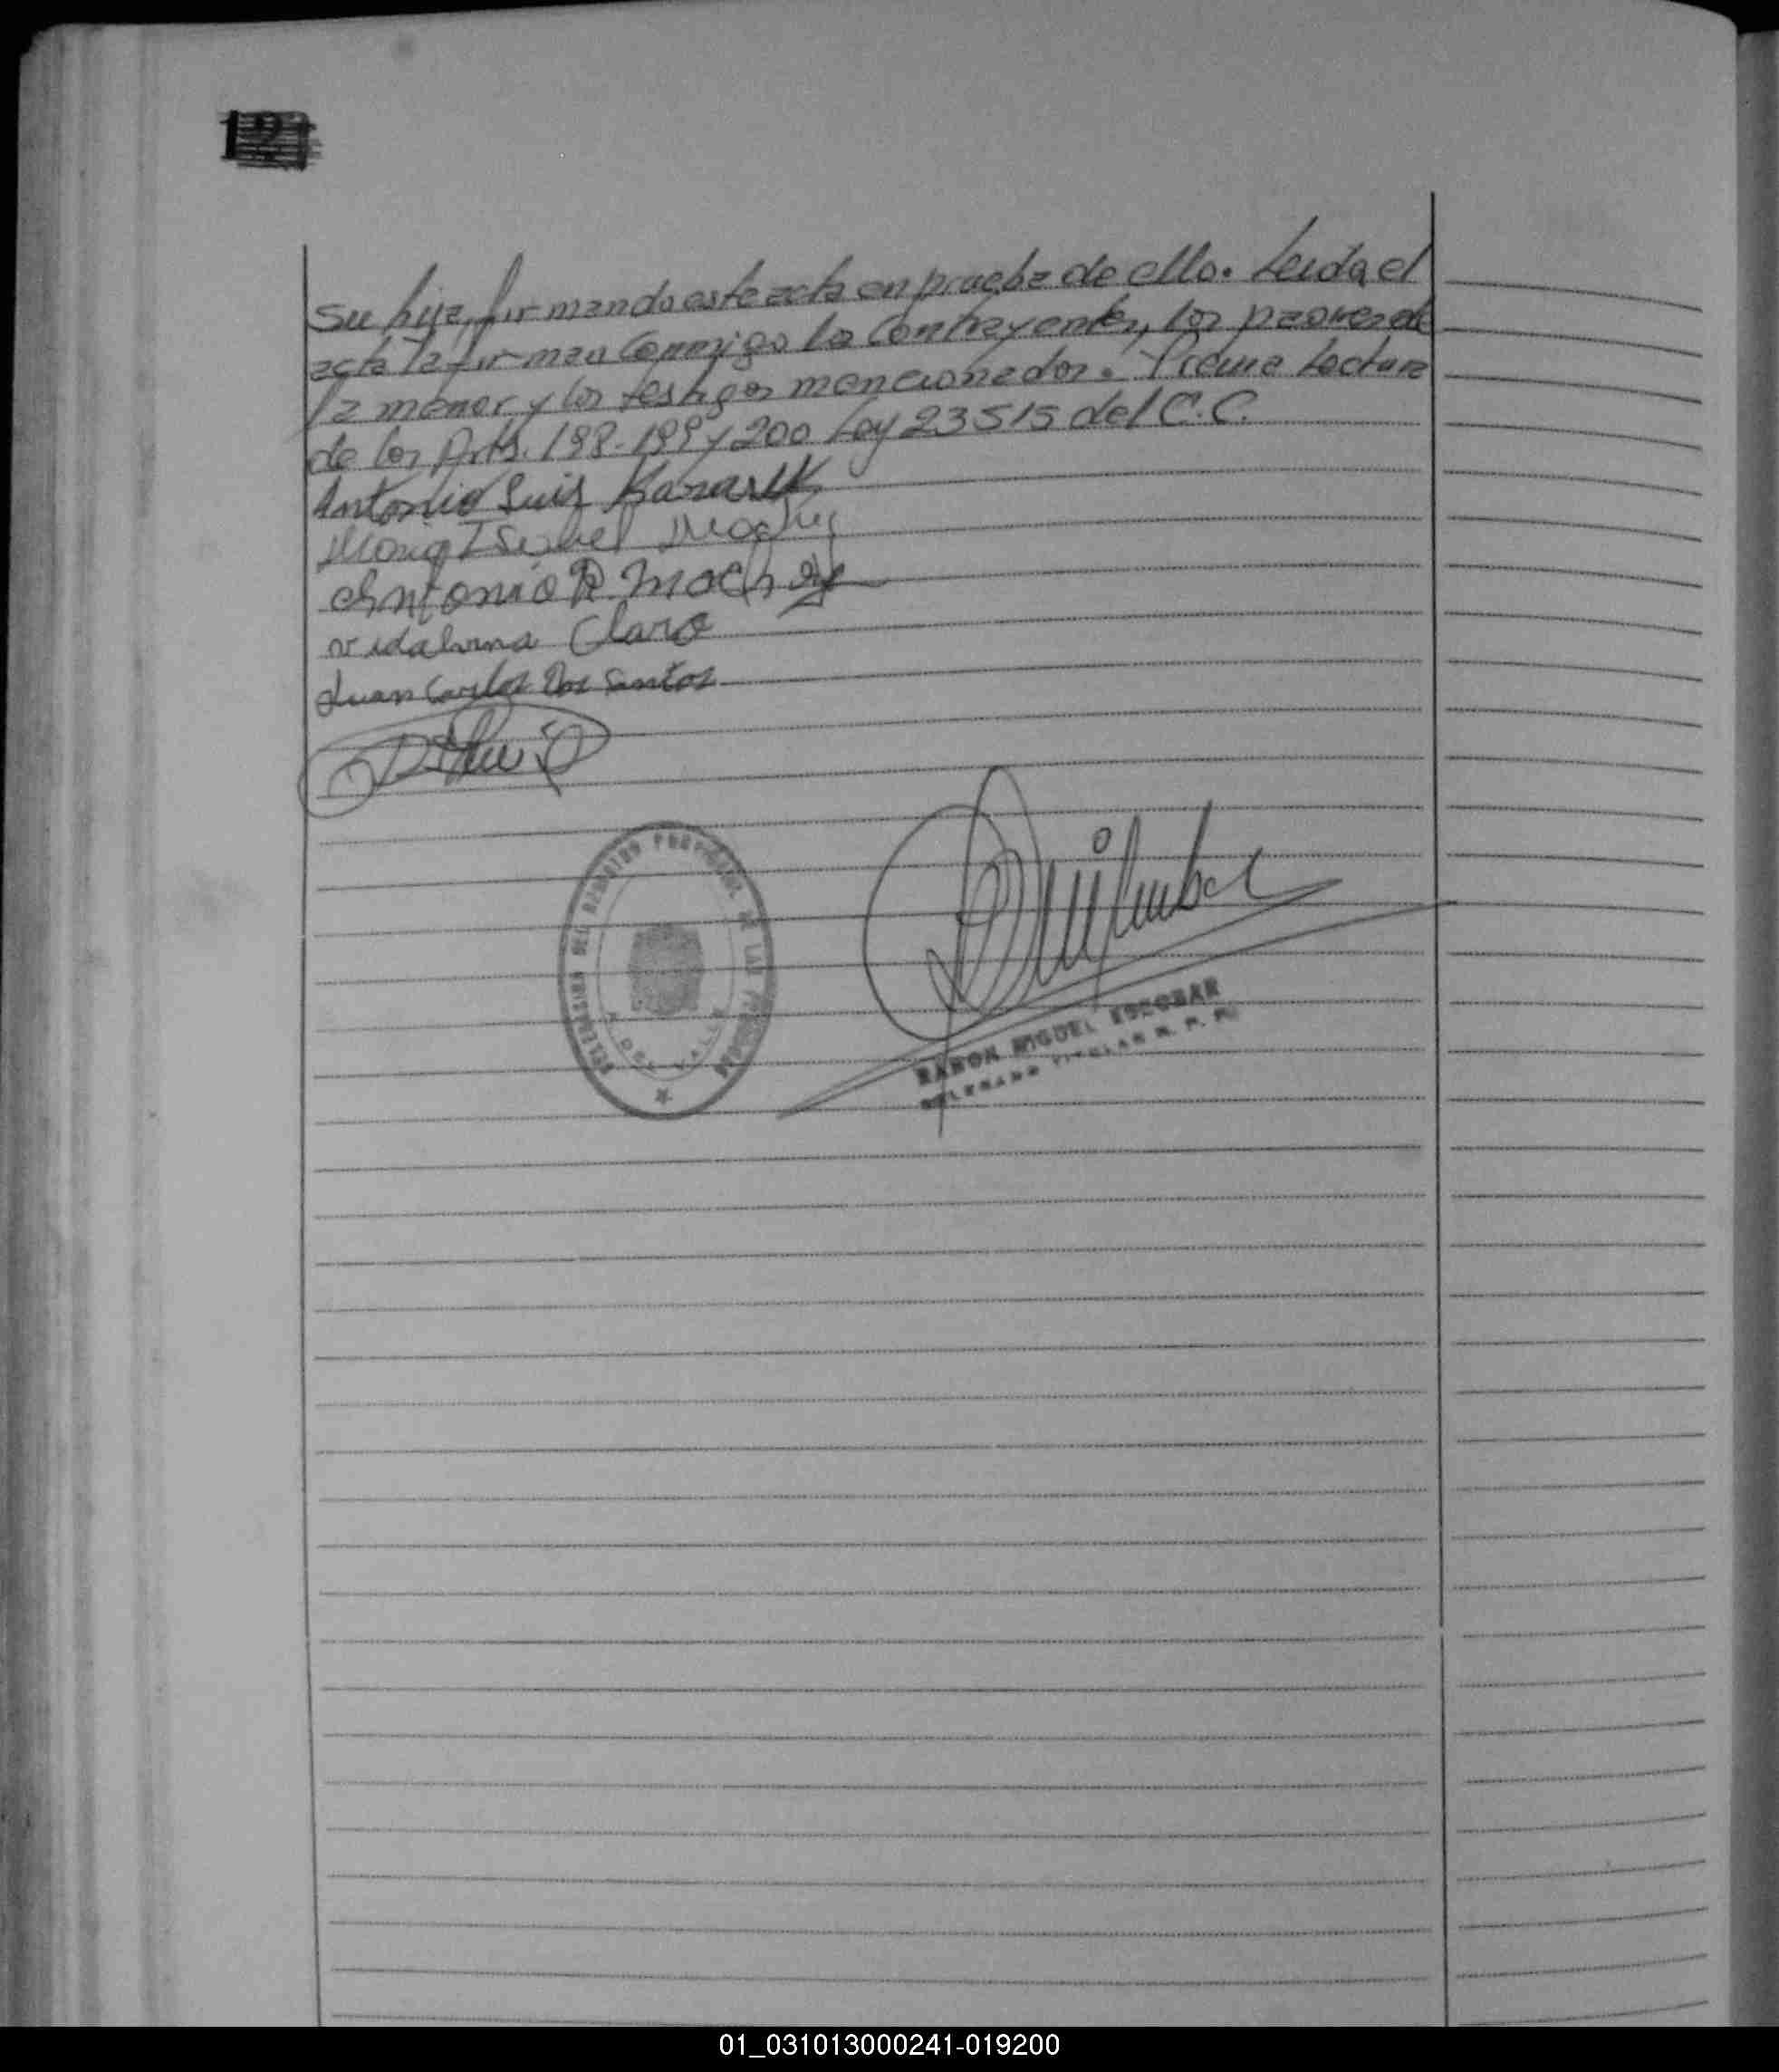 su hija, firmando este acta en prueba de ello. Leida el
acta la firman conmigo los contrayentes, los padres de
la menor y los testigos mencionados. Previa Lectura
de los Arts. 198-199 y 200 Ley 23515 del C.C.
Antonio Luis
Isabel
Antonio R. Machay
vidalvina Claro
Juan Carlos Dos Santos
DEL REGISTRO PROVINCIAL DE LAS PERSONAS
DEL VALLE
RAMON MIGUEL ESCOBAR
DELEGADO TITULAR R. P. P.
01_031013000241-019200